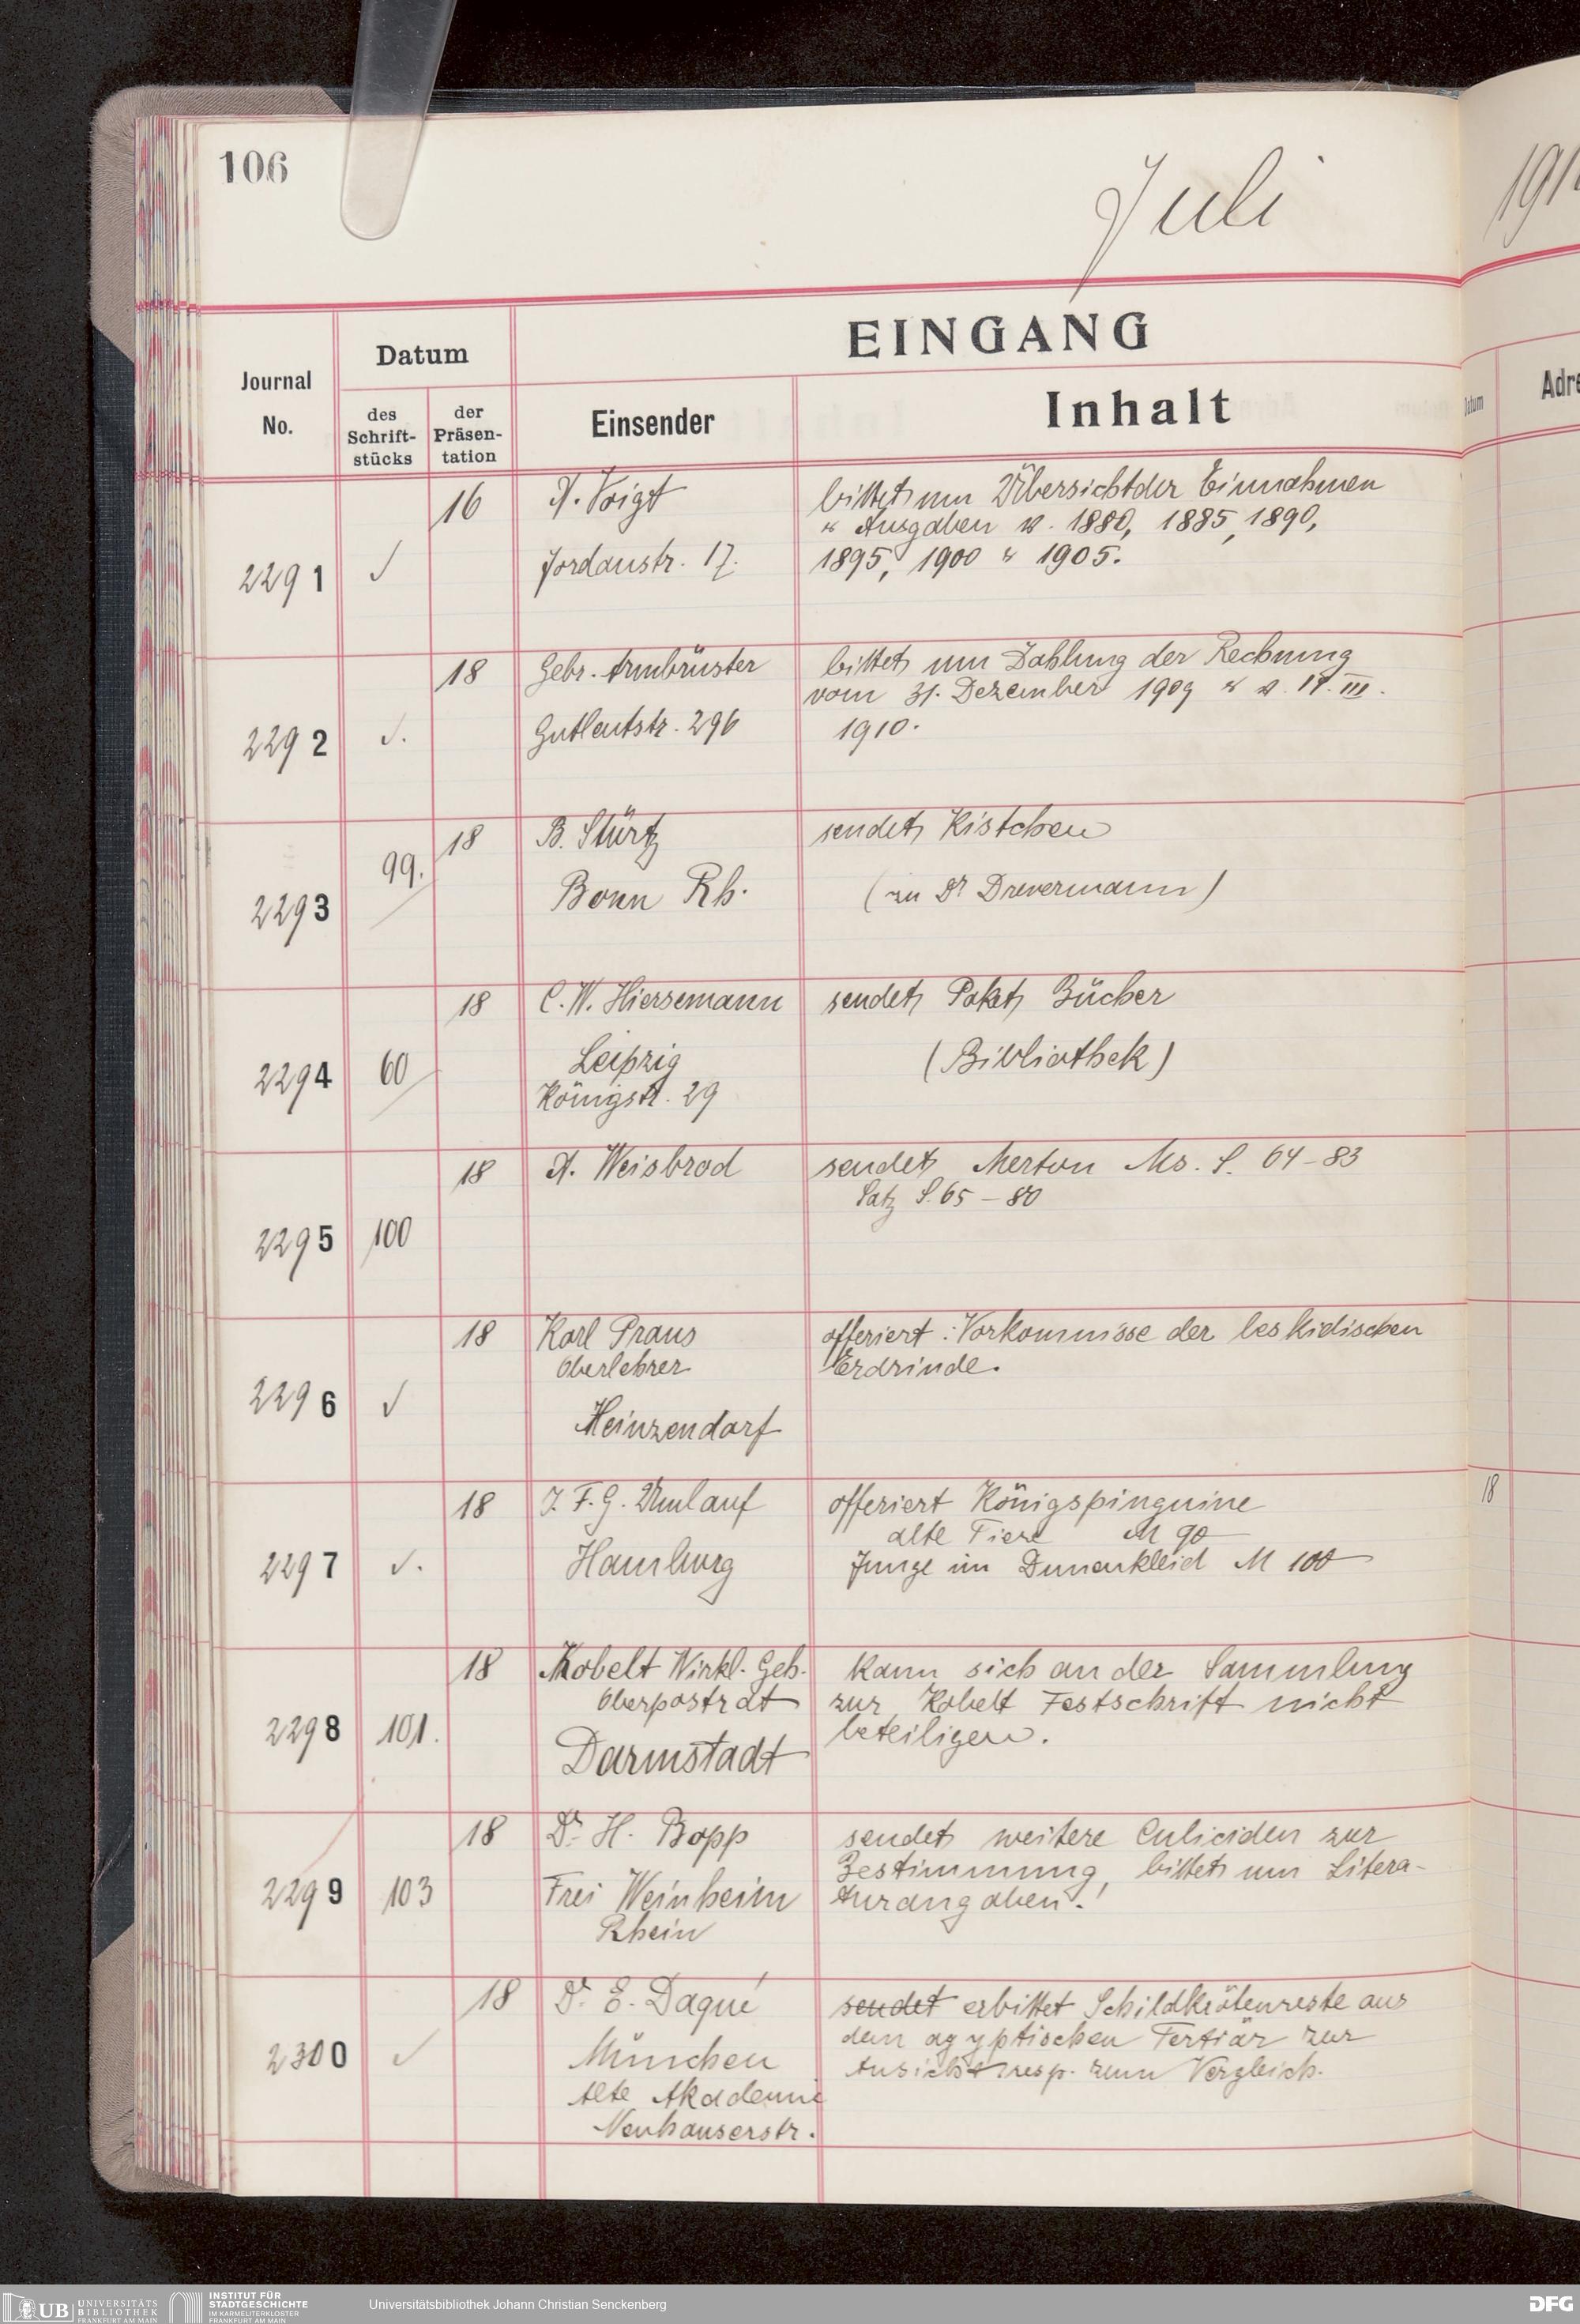 106
Juli
191
EINGANG
Datum
Journal
No.
des
Schrift-
stücks
der
Präsen-
tation
Einsender
Inhalt
Datum
Adre
2291
✓
16
A. Voigt
Jordanstr. 17.
bittet um Übersicht der Einnahmen
u Ausgaben v. 1880, 1885, 1890,
1895, 1900 u 1905.
2292
✓.
18
Gebr. Armbrüster
Gutleutstr. 296
bittet um Zahlung der Rechnung
vom 31. Dezember 1909 u v. III.
1910.
2293
99.
18
B. Stürtz
Bonn Rh.
sendet Kistchen
(zu Dr Drevermann)
2294
60
18
C. W. Hiersemann
Leipzig
Königstr. 29
sendet Paket Bücher
(Bibliothek)
2295
100
18
A. Weisbrod
sendet Merton Ms. S. 64-83
Satz S. 65 - 80
2296
✓
18
Karl Praus
Oberlehrer
Heinzendorf
offeriert: Vorkommnisse der beskidischen
Erdrinde.
2297
✓.
18
J. F. G. Umlauf
Hamburg
offeriert Königspinguine
alte Tiere M 90
Junge im Dunenkleid M 100
18
2298
101.
18
Kobelt Wirkl. Geh.
Oberpostrat
Darmstadt
kann sich an der Sammlung
zur Kobelt Festschrift nicht
beteiligen.
2299
103
18
Dr. H. Bopp
Frei Weinheim
Rhein
sendet weitere Culiciden zur
Bestimmung, bittet um Litera-
turangaben!
2300
✓
18
Dr. E. Daqué
München
Alte Akademie
Neuhauserstr.
sendet erbittet Schildkrötenreste aus
dem agyptischen Tertiär zur
Ansicht resp. zum Vergleich.
UB UNIVERSITÄTS
BIBLIOTHEK
FRANKFURT AM MAIN
INSTITUT FÜR
STADTGESCHICHTE
IM KARMELITERKLOSTER
FRANKFURT AM MAIN
Universitätsbibliothek Johann Christian Senckenberg
DFG